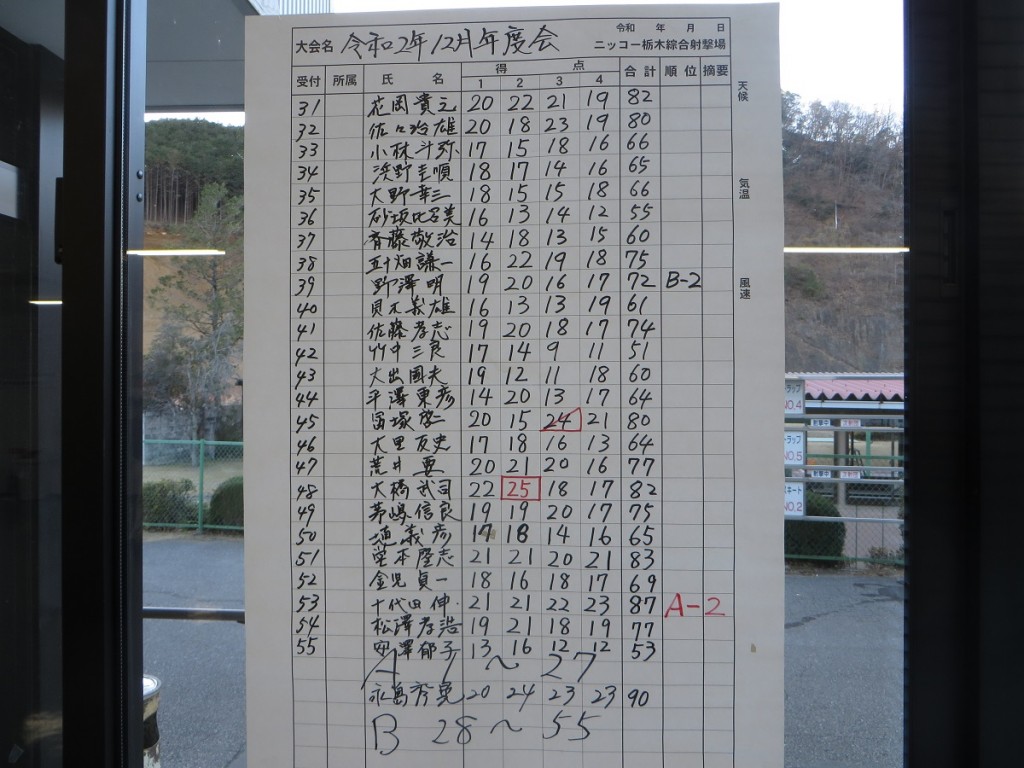 令和 年 月 日
大会名 令和2年12月年度会 ニッコー栃木綜合射撃場
受付 所属 氏名 得点 1 2 3 4 合計 順位 摘要
天候
気温
風速
31 花岡貴之 20 22 21 19 82
32 佐々玲雄 20 18 23 19 80
33 小林斗弥 17 15 18 16 66
34 浅野圭順 18 17 14 16 65
35 大野幸三 18 15 15 18 66
36 砂坂 美 16 13 14 12 55
37 斉藤敬治 14 18 13 15 60
38 五十畑謙一 16 22 19 18 75
39 野澤明 19 20 16 17 72 B-2
40 義雄 16 13 13 19 61
41 佐藤孝志 19 20 18 17 74
42 竹中三良 17 14 9 11 51
43 大出國夫 19 12 11 18 60
44 平澤 彦 14 20 13 17 64
45 塚 二 20 15 24 21 80
46 大里友史 17 18 16 13 64
47 荒井 要 20 21 20 16 77
48 大橋武司 22 25 18 17 82
49 茅嶋信良 19 19 20 17 75
50 義彦 17 18 14 16 65
51 堂本隆志 21 21 20 21 83
52 金児貞一 18 16 18 17 69
53 十代田伸 21 21 22 23 87 A-2
54 松澤孝浩 19 21 18 19 77
55 澤郁子 13 16 12 12 53
A 1 ～ 27
永島秀晃 20 24 23 23 90
B 28 ～ 55
トラップ
NO.4
トラップ
NO.5
スキート
NO.2